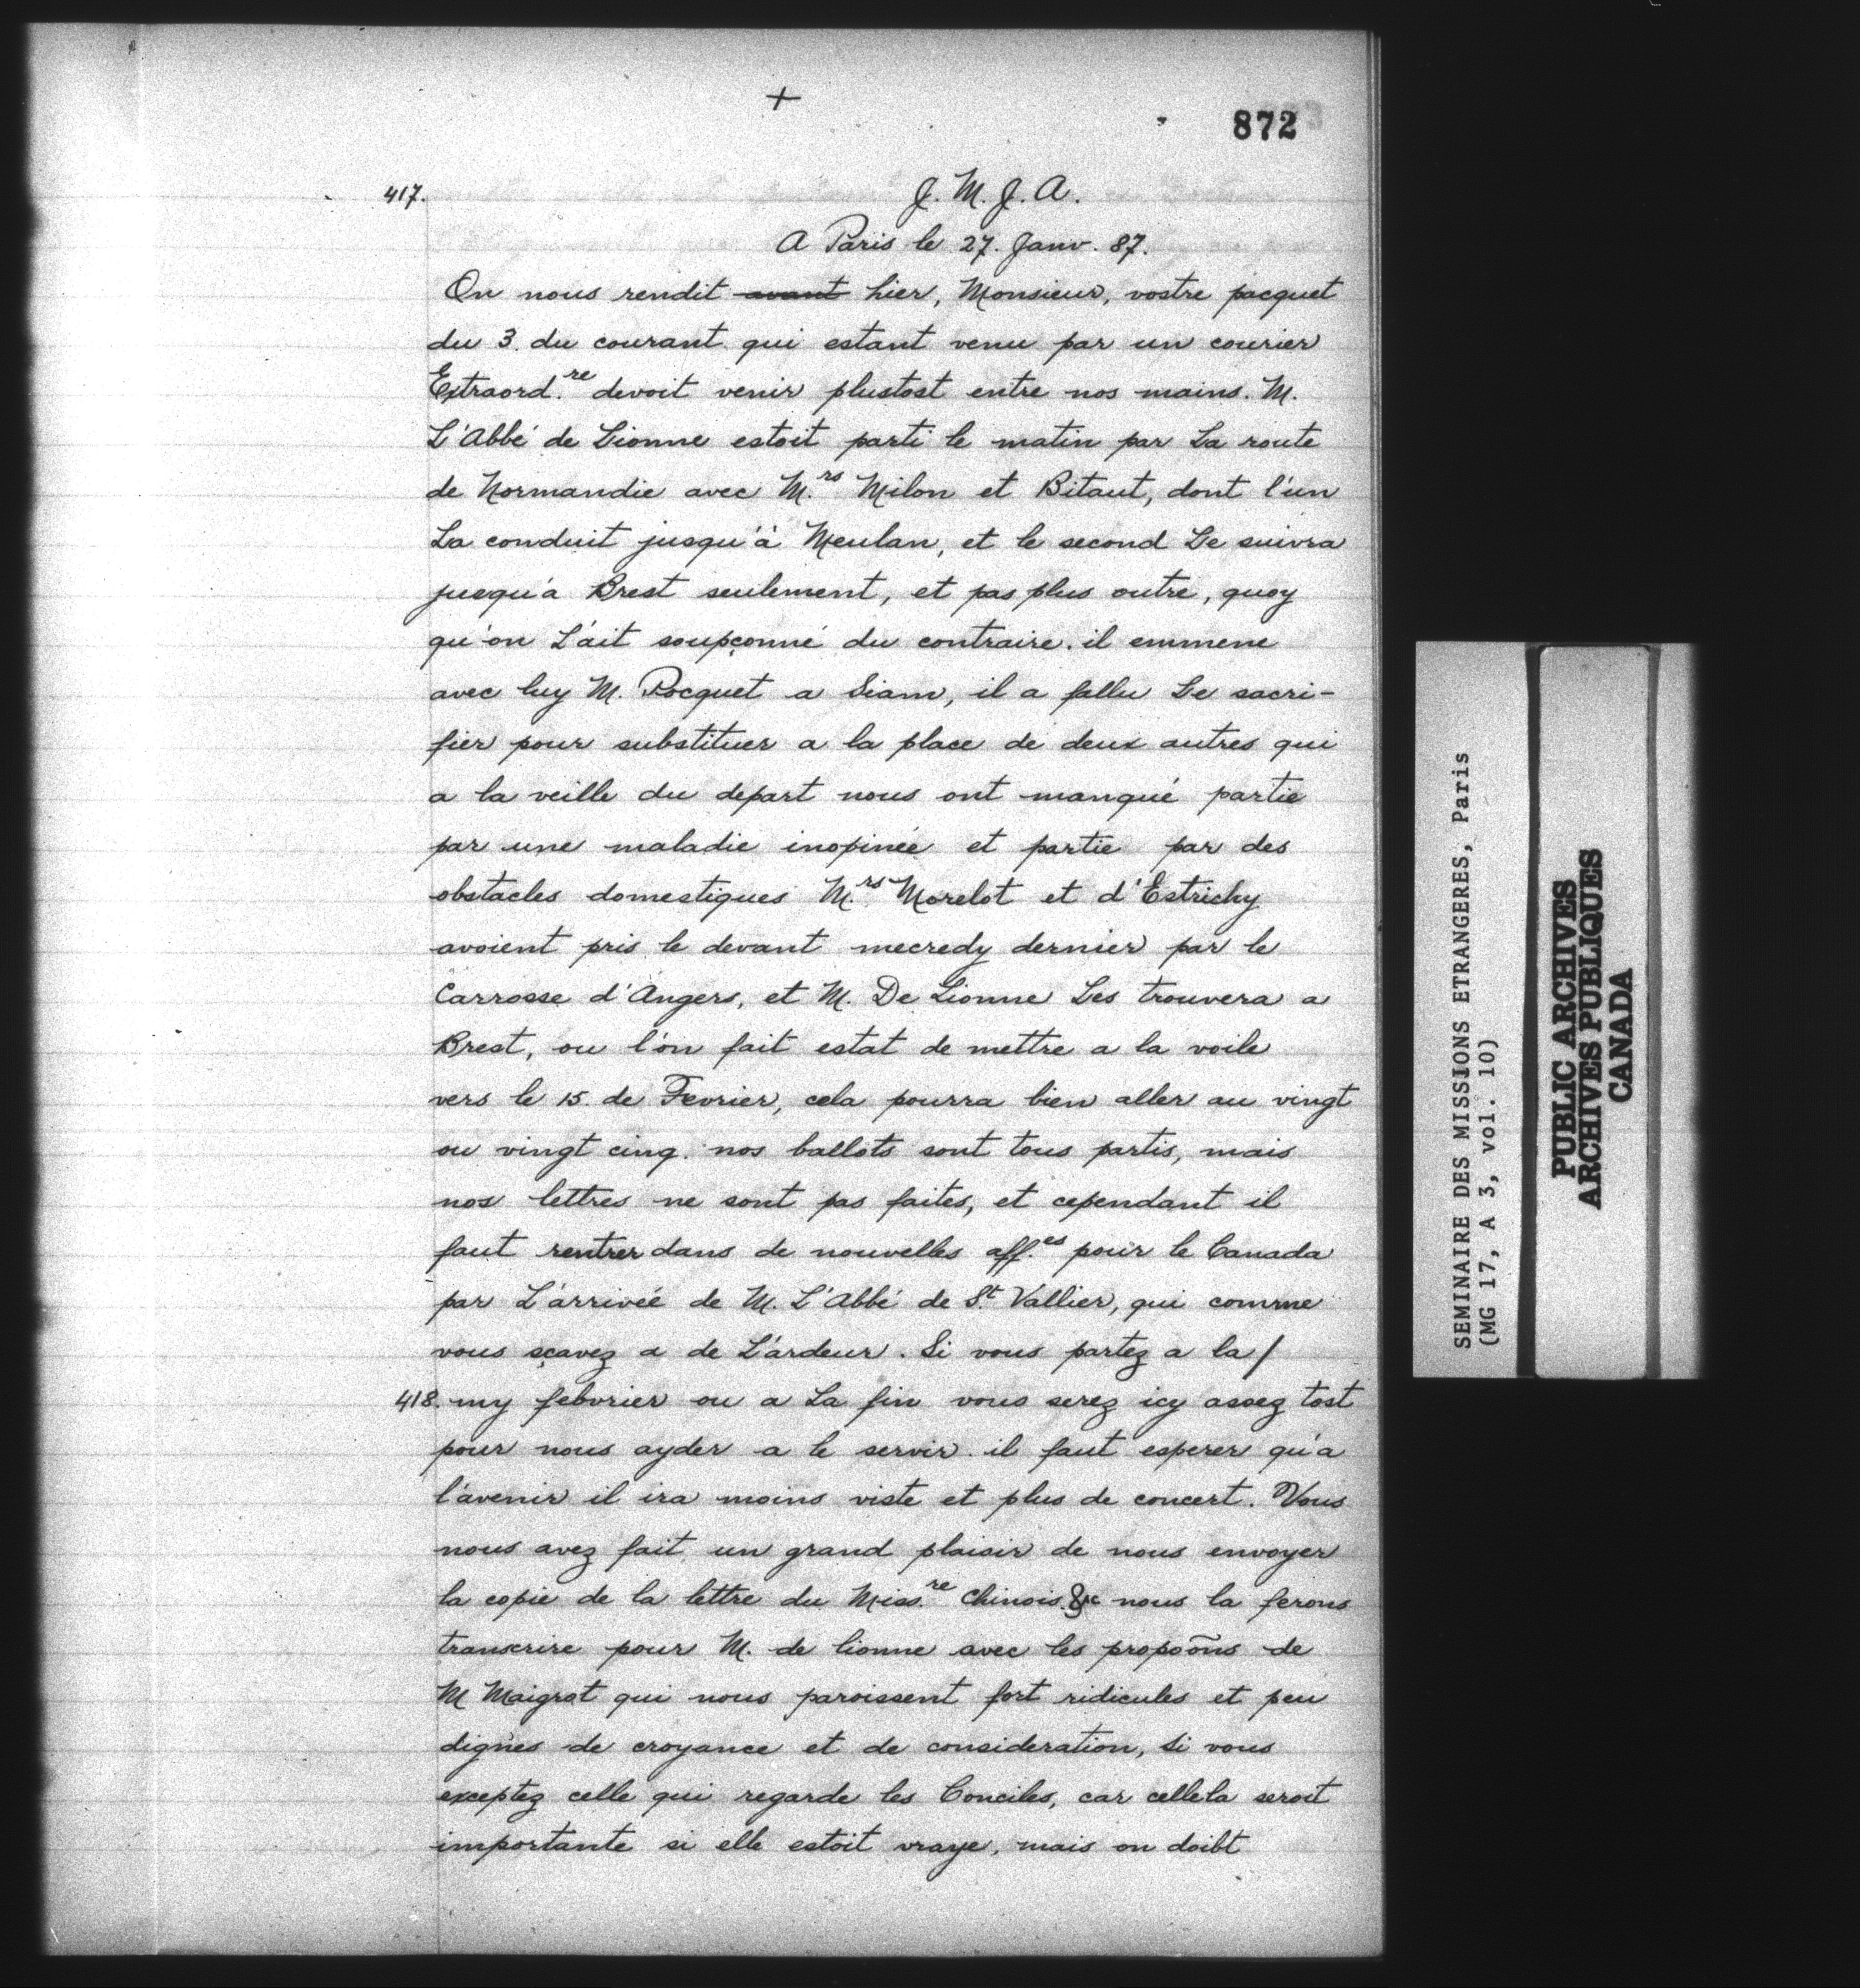 +
872
417. J. M. J. A.
A Paris le 27. Janv. 87.
On nous rendit avant hier, Monsieur, vostre pacquet
du 3. du courant qui estant venu par un courier
Extraord.re devoit venir plustost entre nos mains. M.
L'Abbé de Lionne estoit parti le matin par La route
de Normandie avec M.rs Milon et Bitaut, dont l'un
La conduit jusqu'à Meulan, et le second Le suivra
jusqu'a Brest seulement, et pas plus outre, quoy
qu'on L'ait soupçonné du contraire. il emmene
avec luy M. Pocquet a Siam, il a fallu Le sacri-
fier pour substituer a la place de deux autres qui
a la veille du depart nous ont manqué partie
par une maladie inopinée et partie par des
obstacles domestiques M.rs Morelot et d'Estrichy
avoient pris le devant mecredy dernier par le
Carrosse d'Angers, et M. De Lionne Les trouvera a
Brest, ou l'on fait estat de mettre a la voile
vers le 15. de Fevrier, cela pourra bien aller au vingt
ou vingt cinq. nos ballots sont tous partis, mais
nos lettres ne sont pas faites, et cependant il
faut rentrer dans de nouvelles aff.es pour le Canada
par L'arrivée de M. L'Abbé de St. Vallier, qui comme
vous sçavez a de L'ardeur. Si vous partez a la/
418. my febvrier ou a La fin vous serez icy assez tost
pour nous ayder a le servir. il faut esperer qu'a
l'avenir il ira moins viste et plus de concert. Vous
nous avez fait un grand plaisir de nous envoyer
la copie de la lettre du Miss.re Chinois &c nous la ferons
transcrire pour M. de lionne avec les propoõns de
M Maigrot qui nous paroissent fort ridicules et peu
dignes de croyance et de consideration, Si vous
exceptez celle qui regarde les Conciles, car cellela seroit
importante si elle estoit vraye, mais on doibt
SEMINAIRE DES MISSIONS ETRANGERES, Paris
(MG 17, A 3, vol. 10)
PUBLIC ARCHIVES
ARCHIVES PUBLIQUES
CANADA